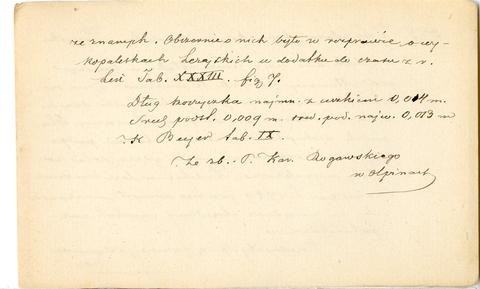 ze znanych. Obszernie o nich było w rozprawie o wy-
kopaliskach Leżajskich w dodatku do czasu z r.
Tab. XXXIII. fig 7.
Dług koszyczka najmn. z uszkiem 0,014 m.
Śred. podst. 0,009 m. śred. pod. najw. 0,013 m
K. Beyer tab. IX.
Ze zb. P. Kar. Rogawskiego
w Ołpinach